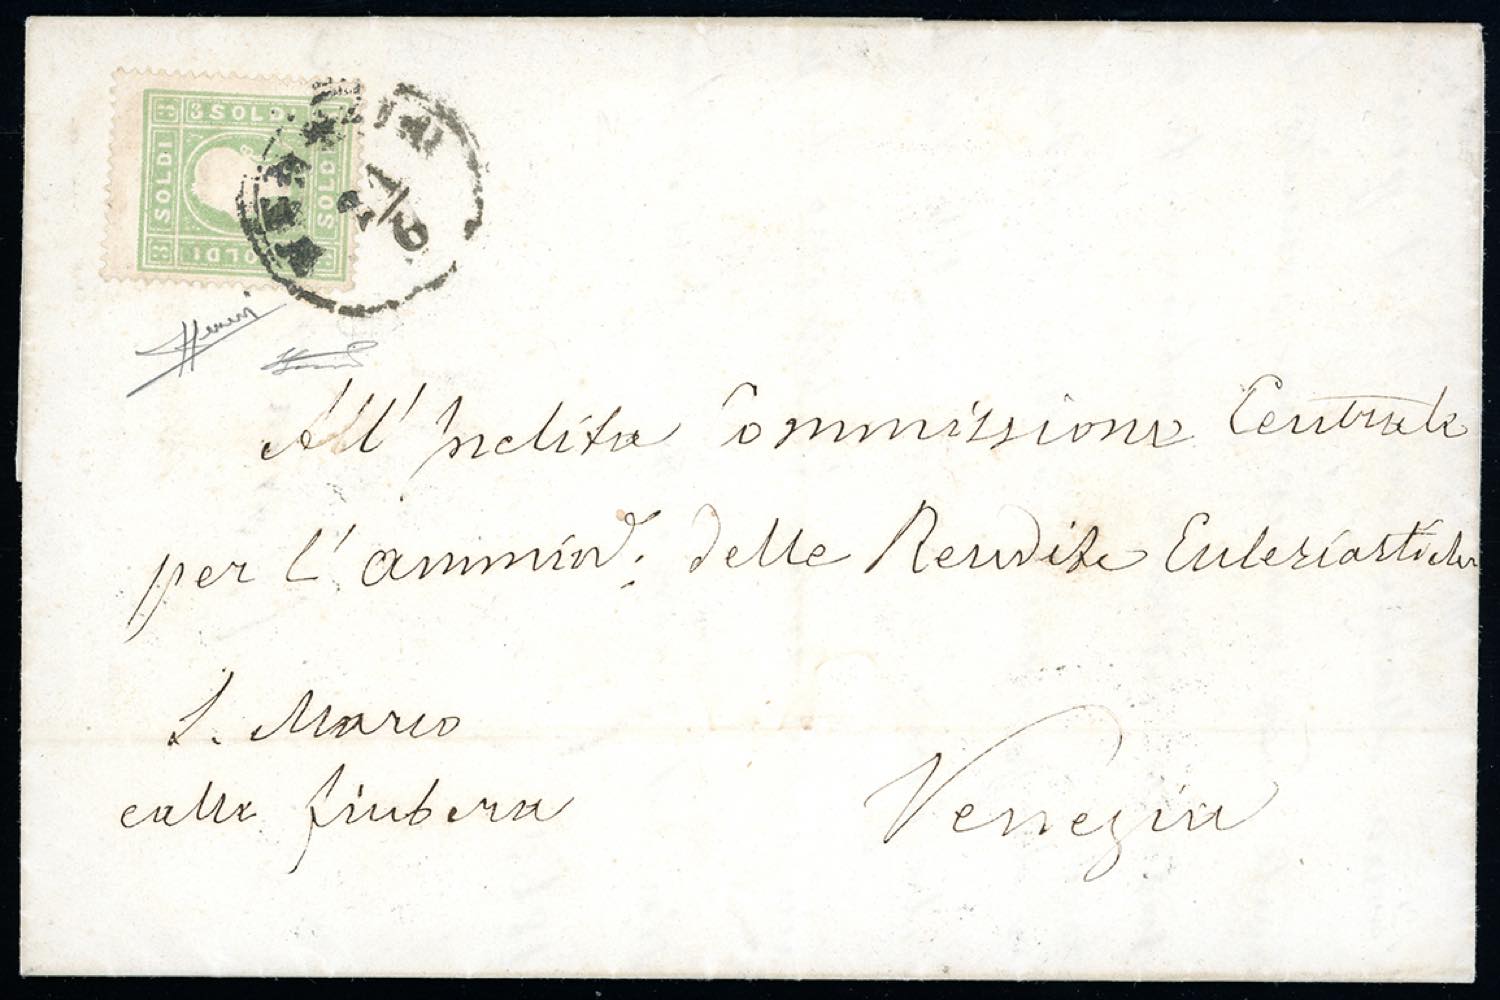 3 SOLDI
SOLDI
SOLDI
SOLDI
VENEZIA
All' Inclita Commissione Centrale
per l' amminis.e: delle Rendite Ecclesiastiche
S. Marco
calle fiubera
Venezia